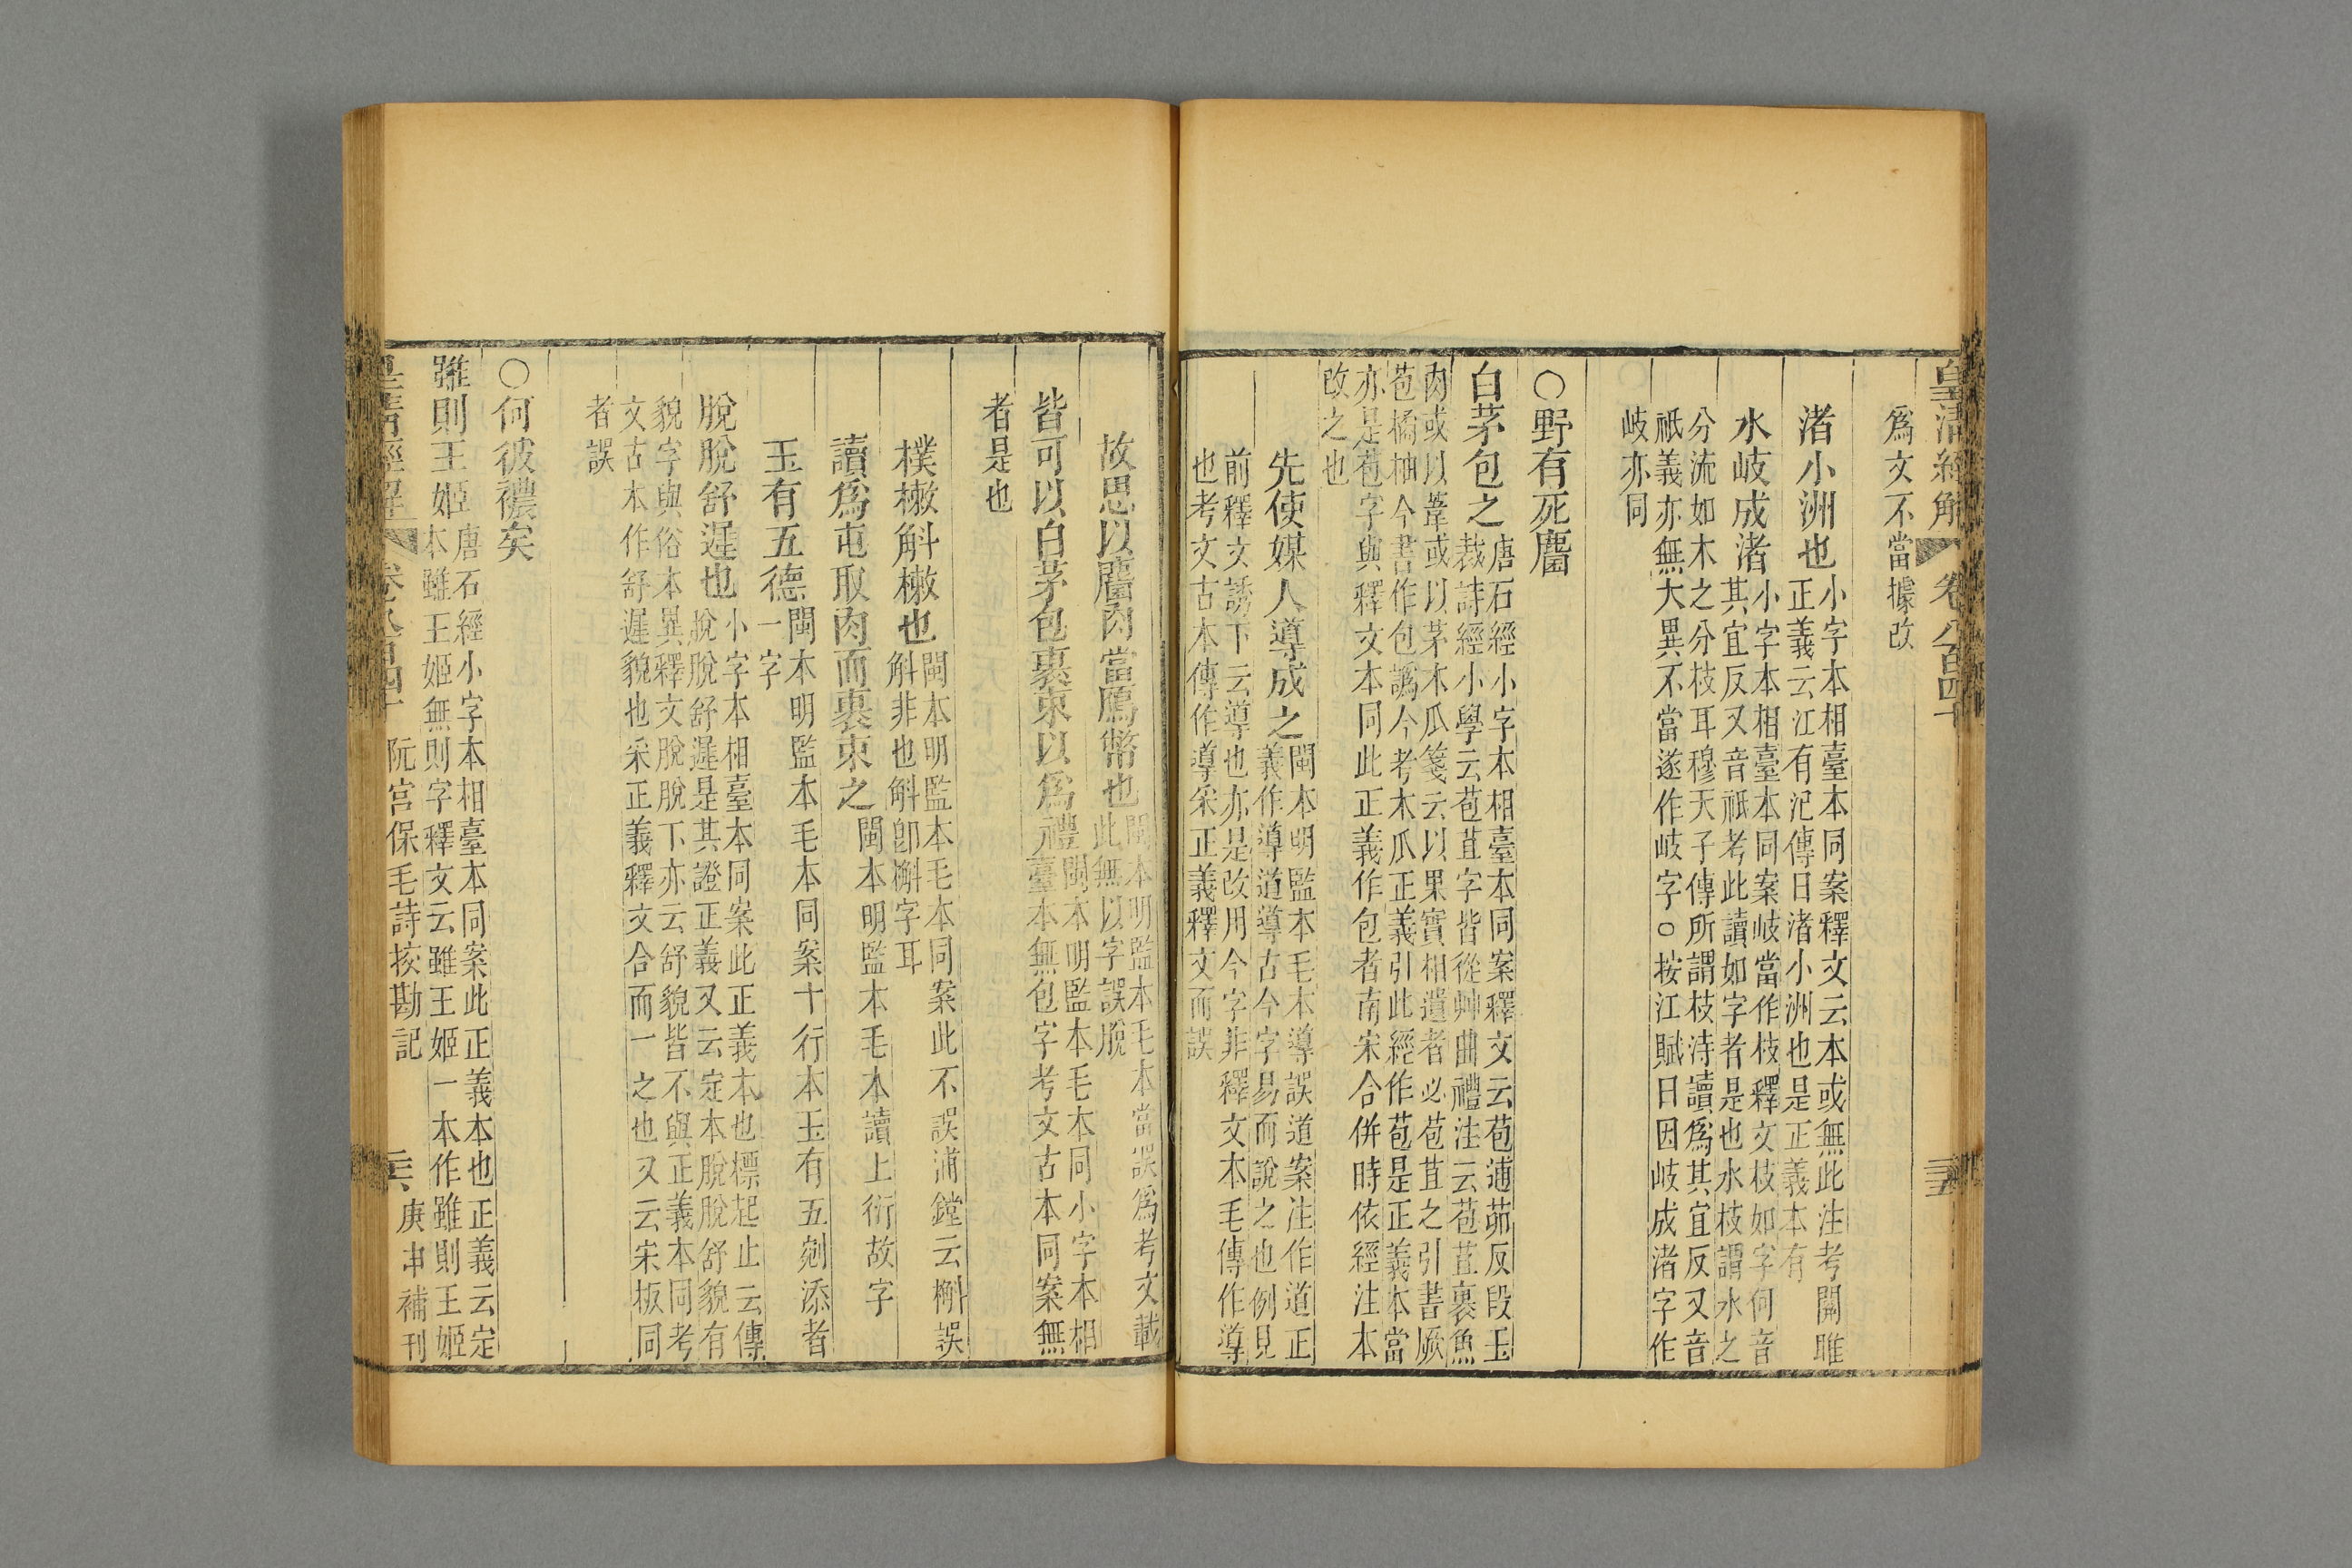 皇清經解 卷八百四十 三五
爲文不當據改
渚小洲也小字本相臺本同案釋文云本或無此注考關雎
正義云江有汜傳曰渚小洲也是正義本有
水岐成渚小字本相臺本同案岐當作枝釋文枝如字何音
其宜反又音祇考此讀如字者是也水枝謂水之
分流如木之分枝耳穆天子傳所謂枝洔讀爲其宜反又音
祇義亦無大異不當遂作岐字○按江賦曰因岐成渚字作
岐亦同
○野有死麕
白茅包之唐石經小字本相臺本同案釋文云苞逋茆反段玉
裁詩經小學云苞苴字皆從艸曲禮注云苞苴裹魚
肉或以葦或以茅木瓜箋云以果實相遺者必苞苴之引書厥
苞橘柚今書作包譌今考木瓜正義引此經作苞是正義本當
亦是苞字與釋文本同此正義作包者南宋合併時依經注本
改之也
先使媒人導成之閩本明監本毛本導誤道案注作道正
義作導道導古今字易而說之也例見
前釋文誘下云導也亦是改用今字非釋文本毛傳作導
也考文古本傳作導采正義釋文而誤
故思以麕肉當鴈幣也閩本明監本毛本當誤爲考文載
此無以字誤脫
皆可以白茅包裹束以爲禮閩本明監本毛本同小字本相
臺本無包字考文古本同案無
者是也
樸樕斛樕也閩本明監本毛本同案此不誤浦鏜云槲誤
斛非也斛卽槲字耳
讀爲屯取肉而裹束之閩本明監本毛本讀上衍故字
玉有五德閩本明監本毛本同案十行本玉有五剜添者
一字
脫脫舒遲也小字本相臺本同案此正義本也標起止云傳
脫脫舒遲是其證正義又云定本脫脫舒貌有
貌字與俗本異釋文脫脫下亦云舒貌皆不與正義本同考
文古本作舒遲貌也采正義釋文合而一之也又云宋板同
者誤
○何彼襛矣
雖則王姬唐石經小字本相臺本同案此正義本也正義云定
本雖王姬無則字釋文云雖王姬一本作雖則王姬
皇清經解 卷八百四十 阮宮保毛詩挍勘記 三六 庚申補刊